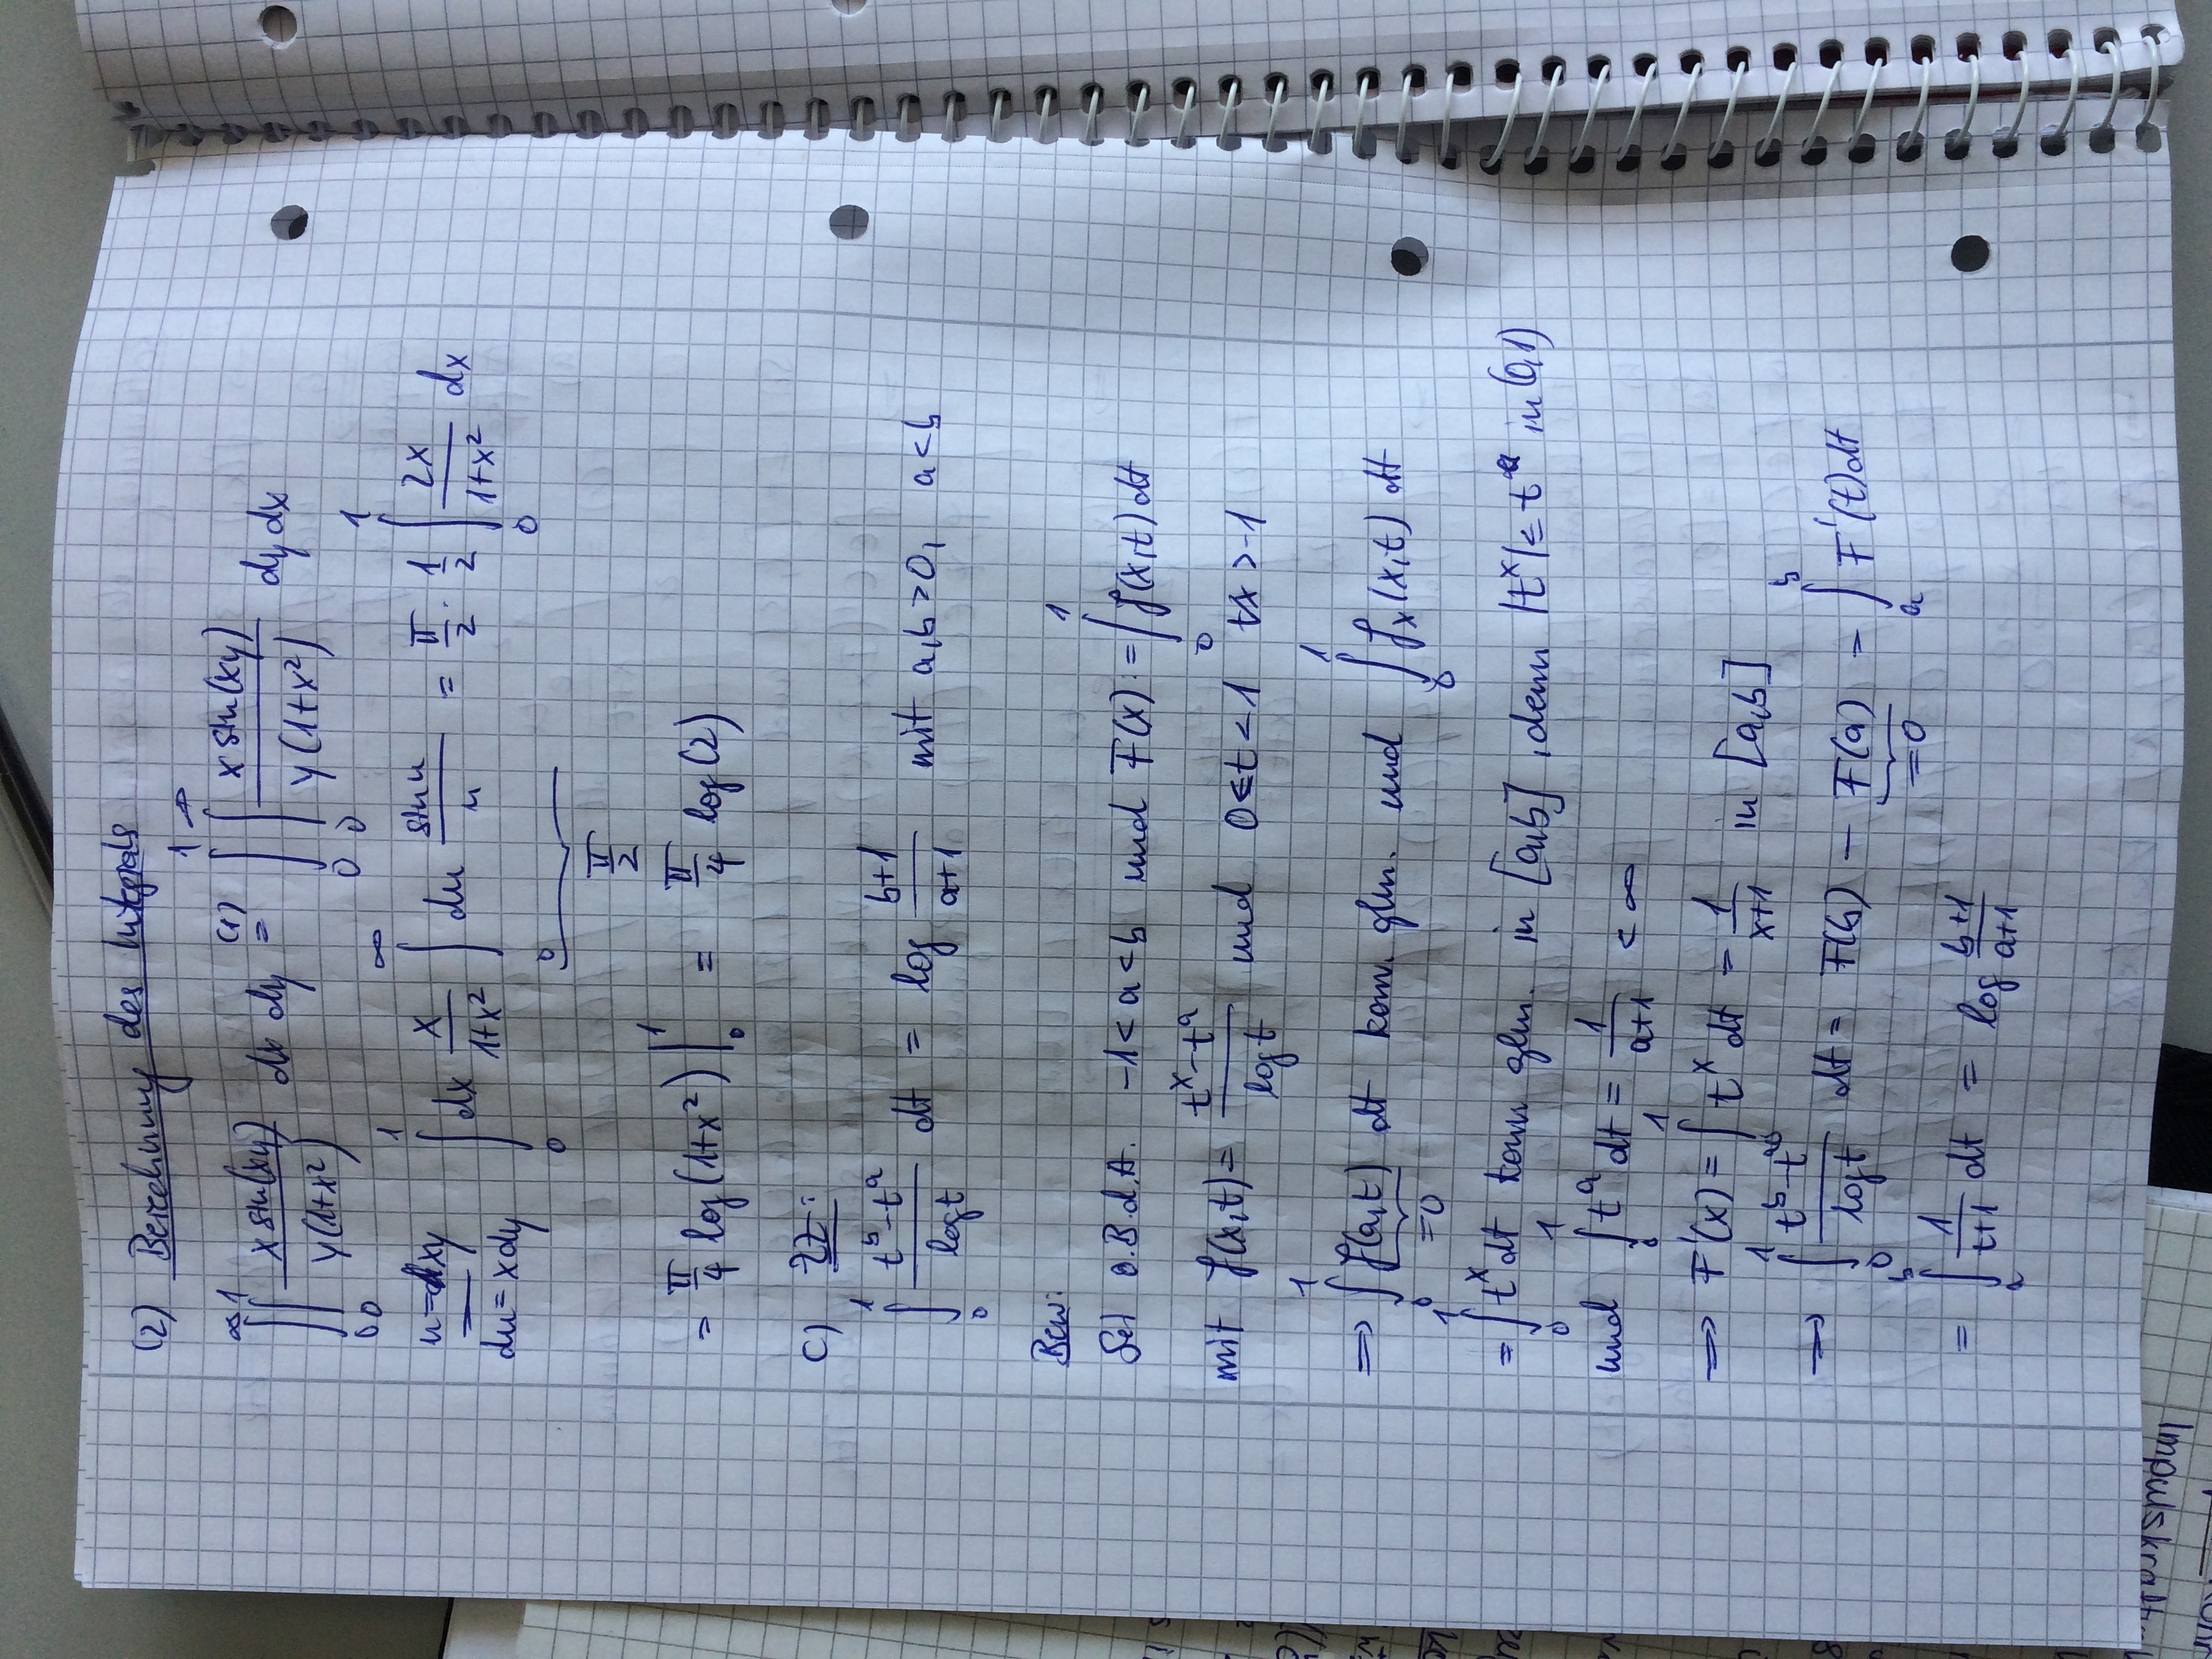 (2) Berechnung des Integrals
∞ 1 ∫∫ 0 0 x sin(xy) / y(1+x²) dx dy (1) = 1 ∞ ∫ ∫ 0 0 x sin(xy) / y(1+x²) dy dx
u = xy, du = x dy ∫₀¹ dx x/(1+x²) ∫₀^∞ du sin u / u = π/2 · 1/2 ∫₀¹ 2x/(1+x²) dx
π/2
= π/4 log(1+x²) |₀¹ = π/4 log(2)
C) ZZ:
∫₀¹ (t^b - t^a)/log t dt = log (b+1)/(a+1) mit a,b > 0, a < b
Bew:
Sei o.B.d.A. -1 < a < b und F(x) := ∫₀¹ f(x,t) dt
mit f(x,t) = (t^x - t^a)/log t und 0 ≤ t < 1 ∀x > -1
⇒ ∫₀¹ f(a,t) dt konv. glm. und ∫₀¹ f_x(x,t) dt
=0
= ∫₀¹ t^x dt konv glm. in [a,b], denn |t^x| ≤ t^a in (0,1)
und ∫₀¹ t^a dt = 1/(a+1) < ∞
⇒ F'(x) = ∫₀¹ t^x dt = 1/(x+1) in [a,b]
⇒ ∫₀¹ (t^b - t^a)/log t dt = F(b) - F(a) = ∫_a^b F'(t) dt
=0
= ∫_a^b 1/(t+1) dt = log (b+1)/(a+1)